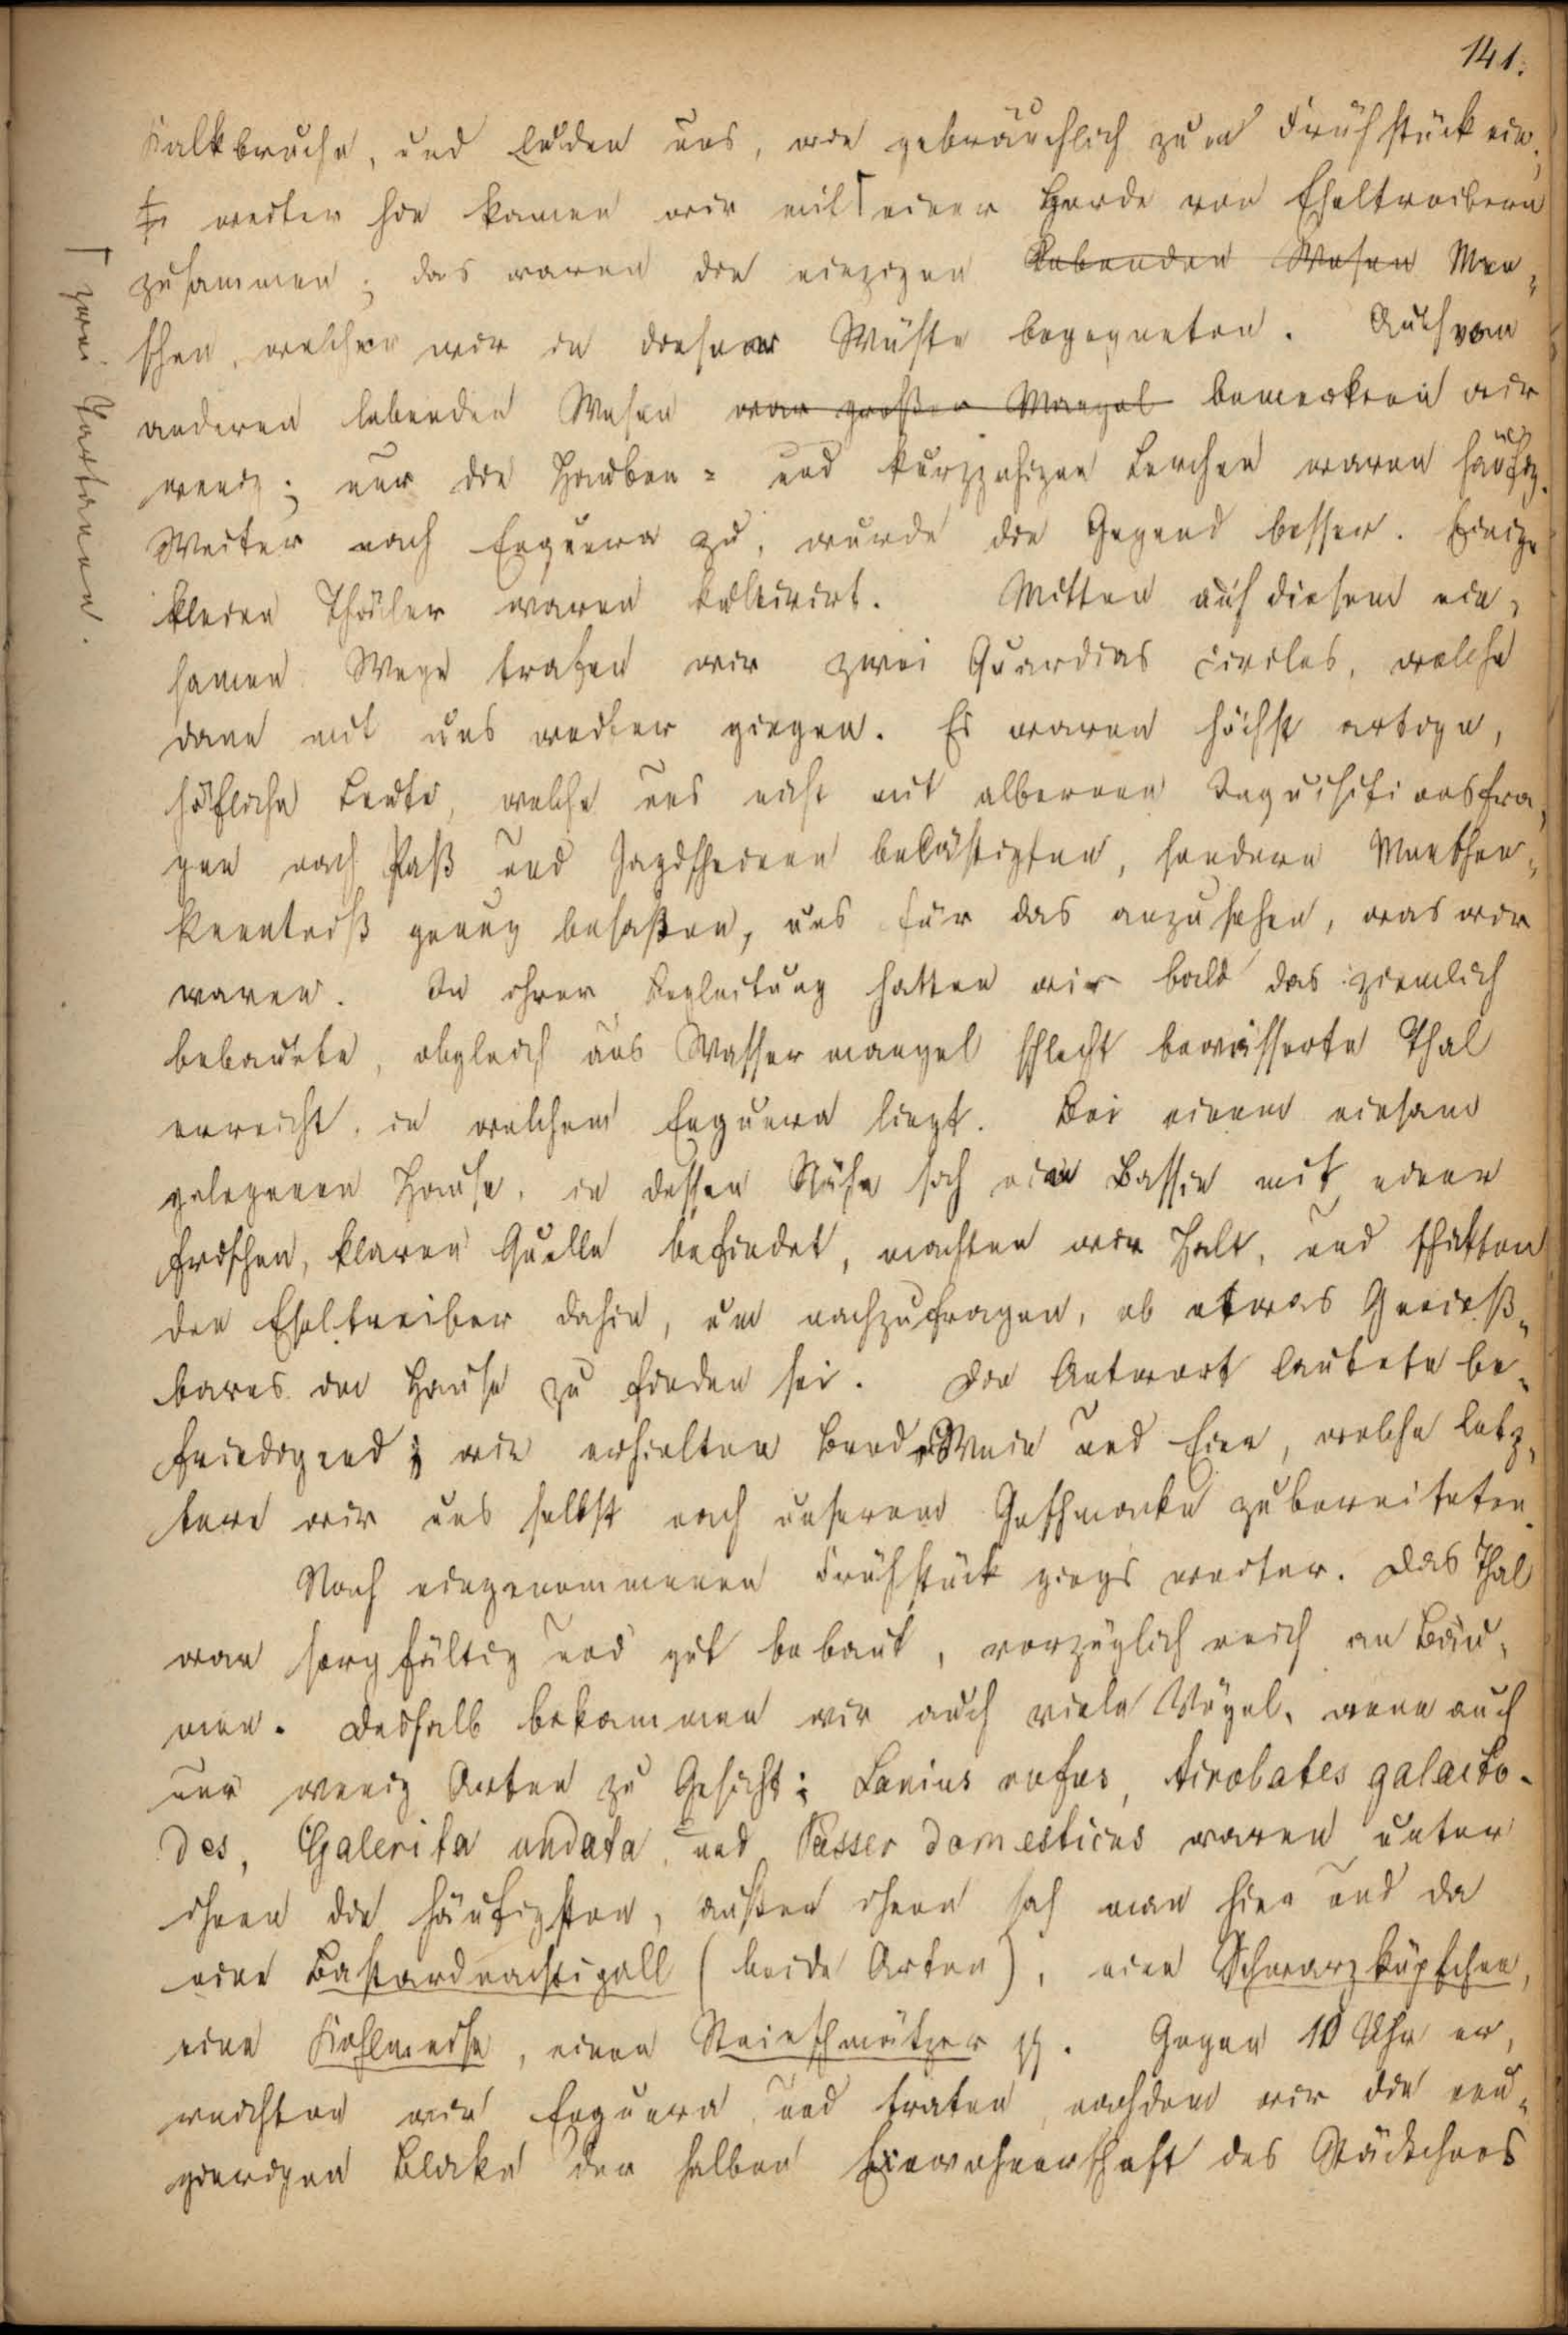 141.
Kalkbruche, und luden uns, wie gebräuchlich zum Frühstück ein;
weiter hin kamen wir mit ⌈ einer Horde von Eseltreibern
zusammen; das waren die einzigen lebenden Wesen Men„
schen, welchen wir in dieser Wüste begegneten. Auch von
anderen lebenden Wesen war großer Mangel bemerkten wir
wenig; nur die Hauben= und kurzzehigen Lerchen waren häufig.
Weiter nach Enguera zu, wurde die Gegend besser. Einige
kleine Thäler waren kultivirt. Mitten auf diesem ein„
samen Wege trafen wir zwei Guardias civiles, welche
dann mit uns weiter gingen. Es waren höchst artige,
höfliche Leute, welche uns nicht mit albernen Inquisitionsfra„
gen nach Paß und Jagdscheinen belästigten, sondern Menschen„
kenntniß genug besaßen, uns für das anzusehen, was wir
waren. In ihrer Begleitung hatten wir bald das ziemlich
bebaute, obgleich aus Wassermangel schlecht bewässerte Thal
erreicht, in welchem Enguera liegt. Bei einem einsam
gelegenen Hause, in dessen Nähe sich ein Bassin mit einer
frischen, klaren Quelle befindet, machten wir Halt, und schickten
den Eseltreiber dahin, um nachzufragen, ob etwas Genieß„
bares im Hause zu finden sei. Die Antwort lautete be„
friedigend; wir erhielten Brod, Wein und Eier, welche letz„
tere wir uns selbst nach unserem Geschmacke zubereiteten.
Nach eingenommenen Frühstück gings weiter. Das Thal
war sorgfältig und gut bebaut, vorzüglich reich an Bäu„
men. Deshalb bekammen wir auch viele Vögel, wenn auch
nur wenig Arten zu Gesicht; Lanius rufus, Aëdobates galacto-
des, Galerita undata, und Passer domesticus waren unter
ihnen die häufigsten, außer ihnen sah man hier und da
eine Bastardnachtigall (beide Arten), ein Schwarzköpfchen,
eine Kohlmeise, einen Steinschmätzer pp. Gegen 10 Uhr er„
reichten wir Enguera, und traten, nachdem wir die neu„
gierigen Blicke der halben Einwohnerschaft des Städtchens
⌈ zwei Tartanen.